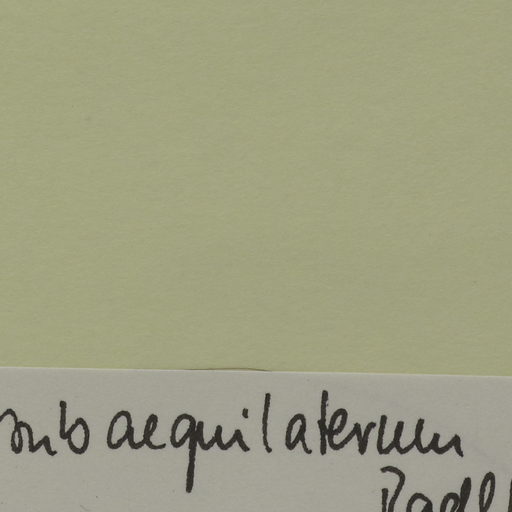 subaequilaterum
Radl